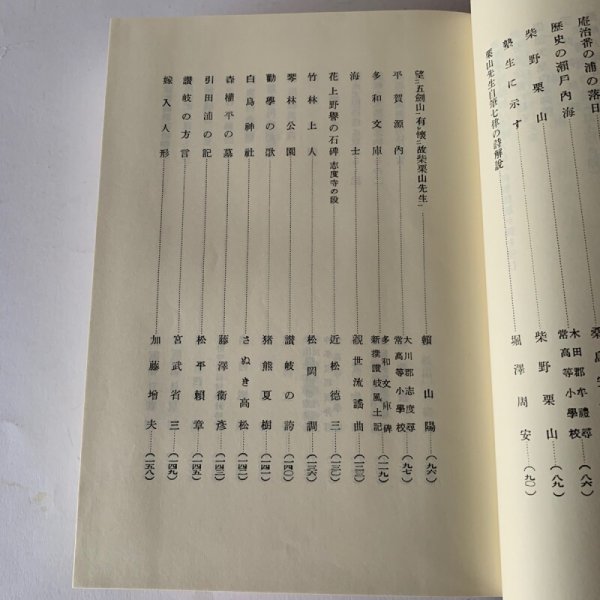 庵治番の浦の落日
歴史の瀬戸内海 木田郡牟禮尋常高等小學校 (八六)
柴野栗山 柴野栗山 (八九)
塾生に示す 堀澤周安 (九〇)
栗山先生自筆七律の詩解説
望五劍山有懷故柴栗山先生 賴山陽 (九六)
平賀源內 大川郡志度尋常高等小學校 (九七)
多和文庫 多和文庫碑 新撰讃岐風土記 (一一九)
海士 觀世流謠曲
花上野譽の石碑 志度寺の段 近松德三 (一三〇)
竹林上人 松岡調 (一三六)
琴林公園 讃岐の誇 (一四〇)
勸學の歌 猪熊夏樹 (一四一)
白鳥神社 さぬき高松
森權平の墓 藤澤衞彥
引田浦の記 松平賴章 (一四五)
讃岐の方言 宮武省三 (一四九)
嫁入人形 加藤增夫 (一五八)